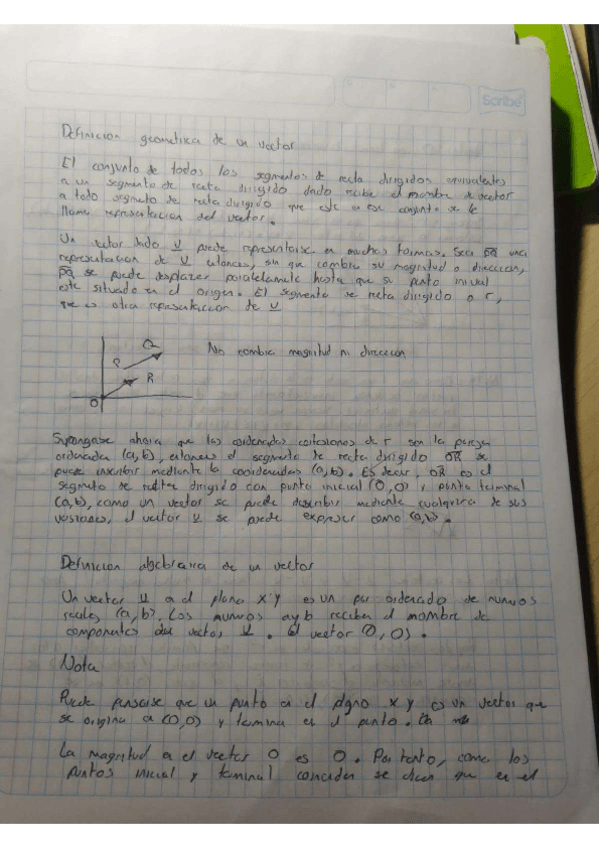 Scribe
Definicion geometrica de un vector
El conjunto de todos los segmentos de recta dirigidos equivalentes
a un segmento de recta dirigido dado recibe el nombre de vector
a todo segmento de recta dirigido que este en ese conjunto se le
llama representacion del vector.
Un vector dado V puede representarse en muchas formas. Sea PQ una
representacion de V entonces, sin que cambie su magnitud o direccion,
PQ se puede desplazar paralelamente hasta que su punto inicial
este situado en el origen. El segmento de recta dirigido o r,
que es otra representacion de V
Q
P
R
O
No cambia magnitud ni direccion
Supongase ahora que las cordenadas cartesianas de r son la pareja
ordenada (a,b), entonces el segmento de recta dirigido OR se
puede inscribir mediante la coordenadas (a,b). Es decir, OR es el
segmento de recta dirigido con punto inicial (0,0) y punto terminal
(a,b), como un vector se puede describir mediante cualquiera de sus
versiones, el vector V se puede expresar como (a,b).
Definicion algebraica de un vector
Un vector V a el plano x y es un par ordenado de numeros
reales (a,b). Los numeros a y b reciben el nombre de
componentes del vector V. El vector (0,0).
Nota
Puede pensarse que un punto en el plano x y es un vector que
se origina en (0,0) y termina en el punto.
La magnitud a el vector 0 es 0. Por tanto, como los
puntos inicial y terminal coinciden se dicen que en el